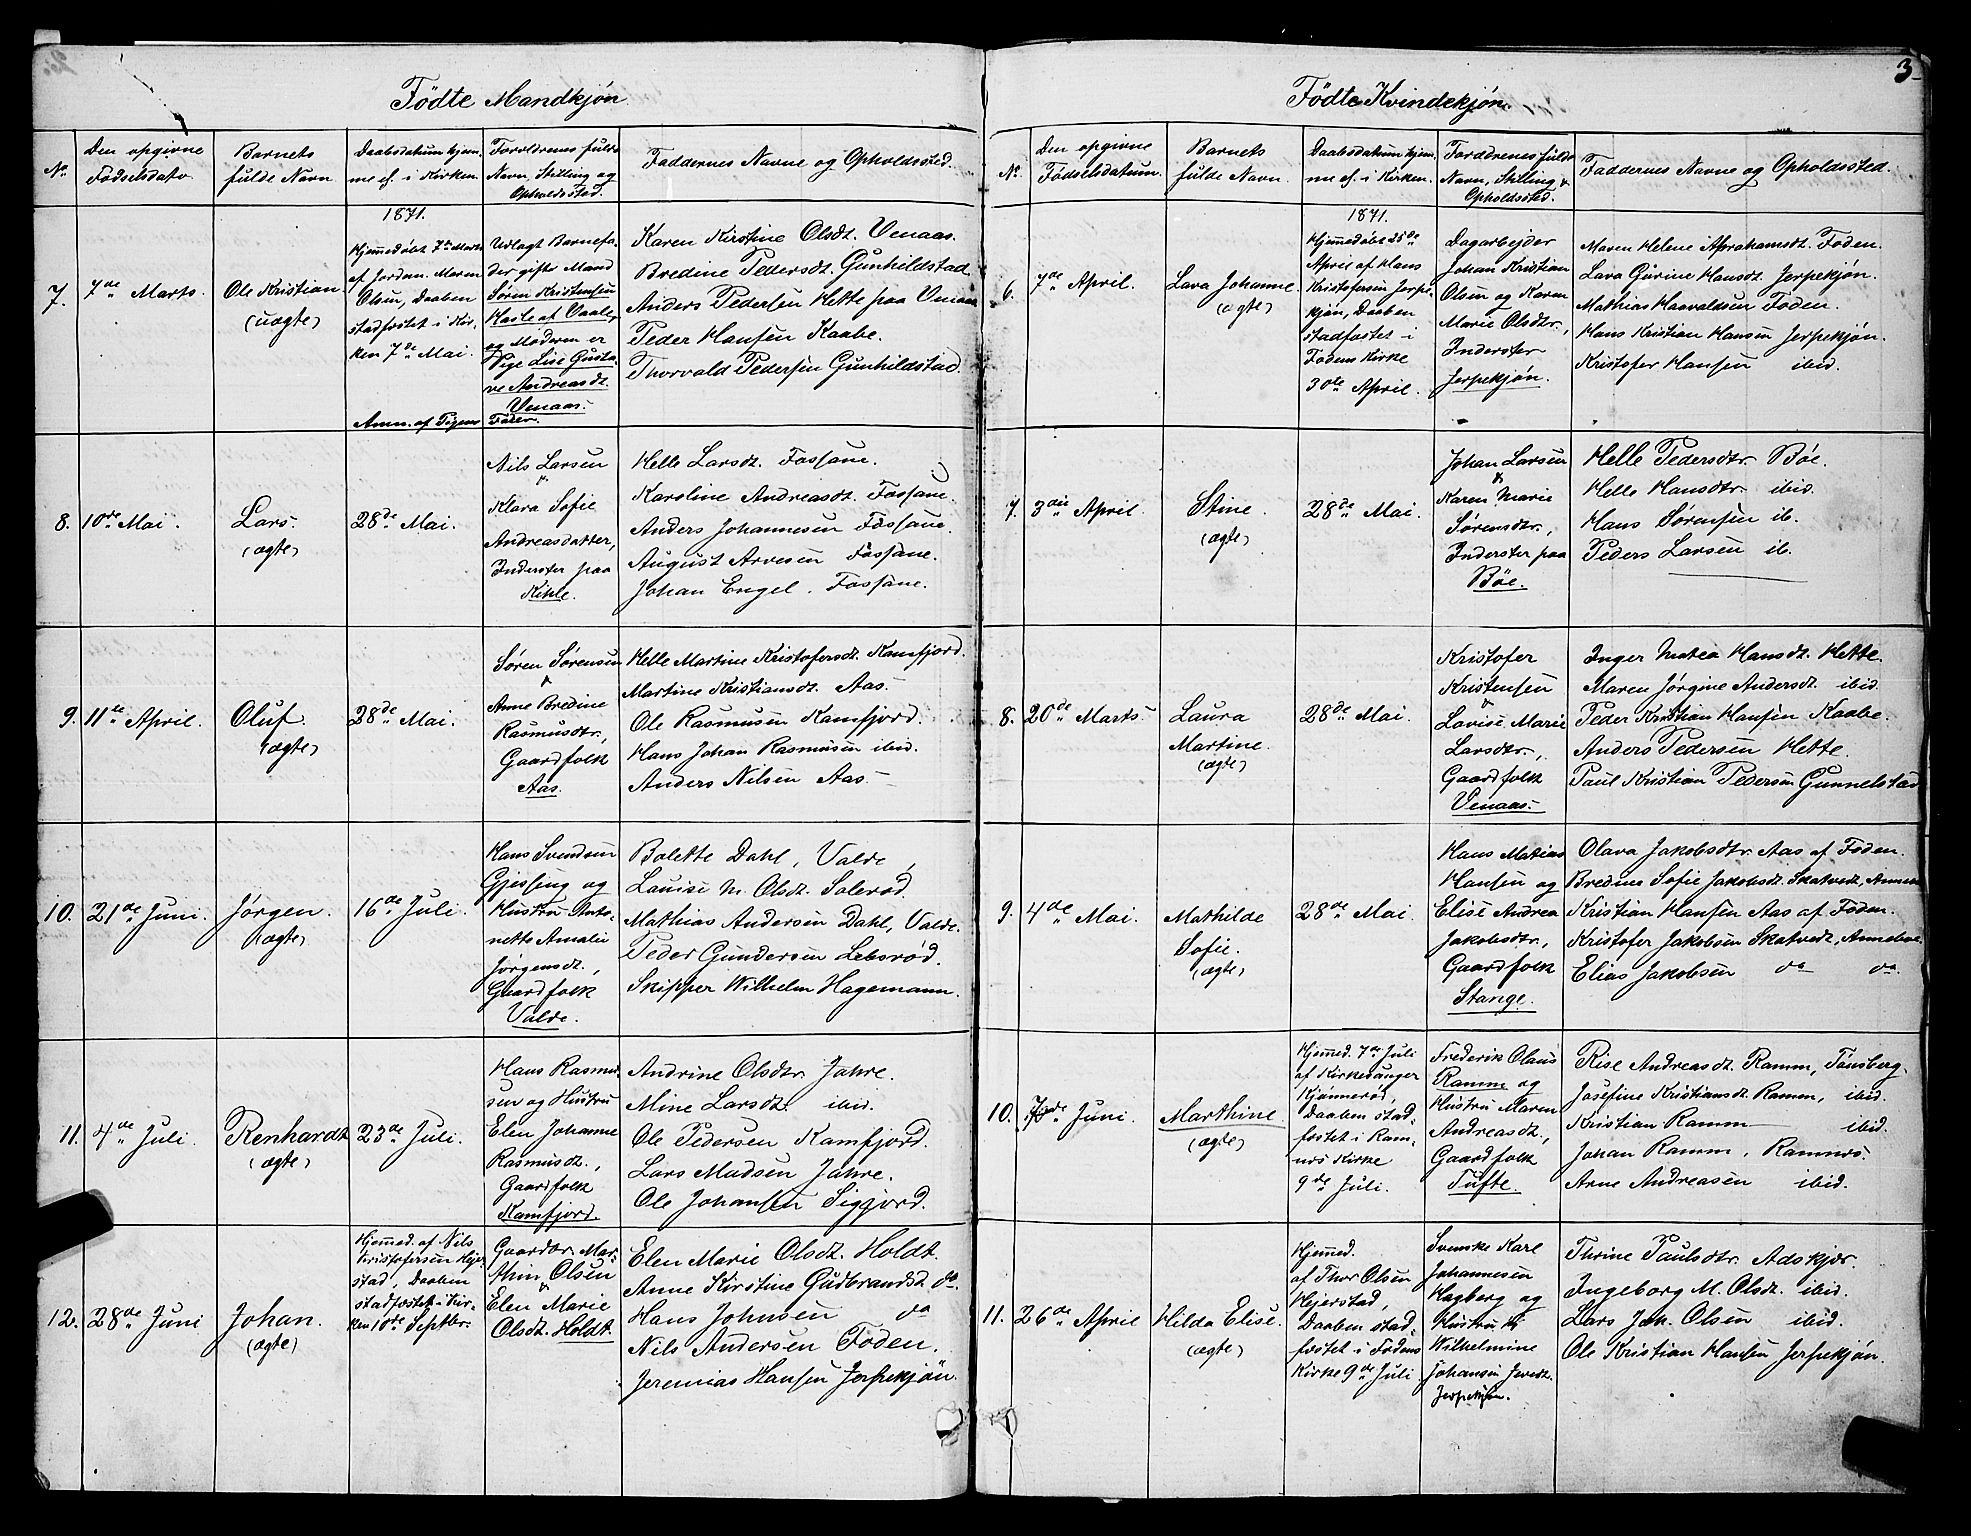 3
Fødte Mandkjøn
No.
Den opgivne
Fødselsdato.
Barnets
fulde Navn
Daabsdatum hjem-
me el. i Kirken.
Forældrenes fulde
Navn, Stilling og
Opholdssted.
Faddernes Navne og Opholdssted.
7.
7de Marts.
Ole Kristian
(uægte)
1871.
Hjemmedøbt 7de Marts
af Jordm. Maren
Olsen, Daaben
stadfæstet i Kir-
ken 7de Mai.
Anm. af Pigens
Udlagt Barnefa-
der gifte Mand
Søren Kristensen
Hasle af Vaale,
og Moderen er
Pige Lise Gusta-
ve Andreasdt.
Venaas.
Fader.
Karen Kirstine Olsdt. Venaas.
Bredine Pedersdt. Gunhildstad.
Anders Pedersen Hette paa Venaas
Peder Hansen Kaabe.
Thorvald Pedersen Gunhildstad.
8.
10de Mai.
Lars.
(ægte)
28de Mai.
Nils Larsen
&
Klara Sofie
Andreasdatter,
Inderster paa
Kihle.
Helle Larsdt. Fossane.
Karoline Andreasdt. Fossane.
Anders Johannesen Fossane.
August Arvesen Fossane.
Johan Engel. Fossane.
9.
11te April.
Oluf.
(ægte)
28de Mai.
Søren Sørensen
&
Anne Bredine
Rasmusdtr.,
Gaardfolk
Aas.
Helle Martine Kristofersdt. Kamfjord.
Martine Kristiansdt. Aas.
Ole Rasmusen Kamfjord.
Hans Johan Rasmusen ibid.
Anders Nilsen Aas.
10.
21de Juni.
Jørgen.
(ægte)
16de Juli.
Hans Svendsen
Gjessing og
Hustru Anto-
nette Amalie
Jørgensdt.,
Gaardfolk
Valde.
Bolette Dahl, Valde,
Lauise M. Olsdt. Solerød.
Mathias Andersen Dahl, Valde.
Peder Gundersen Lebsrød.
Skipper Wilhelm Hagemann.
11.
4de Juli.
Renhardt
(ægte)
23de Juli.
Hans Rasmu-
sen og Hustru
Elen Johanne
Rasmusdt.,
Gaardfolk
Kamfjord.
Andrine Olsdtr. Jahre.
Mine Larsdt. ibid.
Ole Pedersen Kamfjord.
Lars Madsen Jahre.
Ole Johansen Sigjord.
12.
28de Juni
Johan.
(ægte)
Hjemmed. af Nils
Kristofersen Hjer-
stad, Daaben
stadfæstet i Kir-
ken 10de Septbr.
Gaardbr. Mar-
thin Olsen
&
Elen Marie
Olsdt. Holdt.
Elen Marie Olsdt. Holdt.
Anne Kirstine Gudbrandsdt. do.
Hans Johnsen do
Nils Andersen Foden.
Jeremias Hansen Jerpekjøn.
Fødte Kvindekjøn.
No.
Den opgivne
Fødselsdatum.
Barnets
fulde Navn.
Daabsdatum hjem-
me el. i Kirken.
Forældrenes fulde
Navn, Stilling &
Opholdssted.
Faddernes Navne og Opholdssted.
6.
7de April.
Lava Johanne.
(ægte)
1871.
Hjemmedøbt 25de
April af Hans
Kristofersen Jerpe-
kjøn, Daaben
stadfæstet i
Fodens Kirke
30te April.
Dagarbejder
Johan Kristian
Olsen og Karen
Marie Olsdtr.,
Inderster
Jerpekjøn.
Maren Helene Abrahamsdt. Foden.
Lava Gurine Hansdt. Jerpekjøn.
Mathias Haavaldsen Foden.
Hans Kristian Hansen Jerpekjøn.
Kristofer Hansen ibid.
7.
3die April
Stine.
(ægte)
28de Mai.
Johan Larsen
&
Karen Marie
Sørensdtr.,
Inderster paa
Bøe.
Helle Pedersdtr. Bøe.
Helle Hansdtr. ibid.
Hans Sørensen ib.
Peders Larsen ib.
8.
20de Marts
Laura
Martine.
(ægte)
28de Mai.
Kristofer
Kristensen
&
Lovise Marie
Larsdtr.,
Gaardfolk
Venaas.
Inger Matea Hansdt. Hette.
Maren Jørgine Andersdt. ibid.
Peder Kristian Hansen Kaabe.
Anders Pedersen Hette.
Paul Kristian Pedersen Gunnelstad
9.
4de Mai.
Mathilde
Sofie.
(ægte)
28de Mai.
Hans Matias
Hansen og
Elise Andrea
Jakobsdtr.,
Gaardfolk
Stange.
Olava Jakobsdtr. Aas af Foden.
Bredine Sofie Jakobsdt. Skatvedt,
Kristian Hansen Aas af Foden.
Kristofer Jakobsen Skatvedt,
Elias Jakobsen do do.
10.
Juni.
Marthine
(ægte)
Hjemmed. 7de Juli
af Kirkesanger
Kjønnerød,
Daaben stad-
fæstet i Ram-
nes Kirke
9de Juli.
Frederik Olaus
Ramm og
Hustru Maren
Andreasdt.,
Gaardfolk
Tufte.
Rise Andreasdt. Ramm, Tønsberg.
Josefine Kristiansdt. Ramm, ibid.
Kristian Ramm ibid.
Johan Ramm, Ramnes.
Arne Andreasen ibid.
11.
26de April
Hilda Elise.
(ægte)
Hjemmed.
af Thor Olsen
Hjerstad,
Daaben stad-
fæstet i Fodens
Kirke 9de Juli
Svenske Karl
Johannesen
Hagberg og
Hustru
Wilhelmine
Johansen
Jerpekjøn.
Thrine Paulsdtr. Adskjær.
Ingeborg M. Olsdt. ibid.
Lars Joh. Olsen ibid.
Ole Kristian Hansen Jerpekjøn.